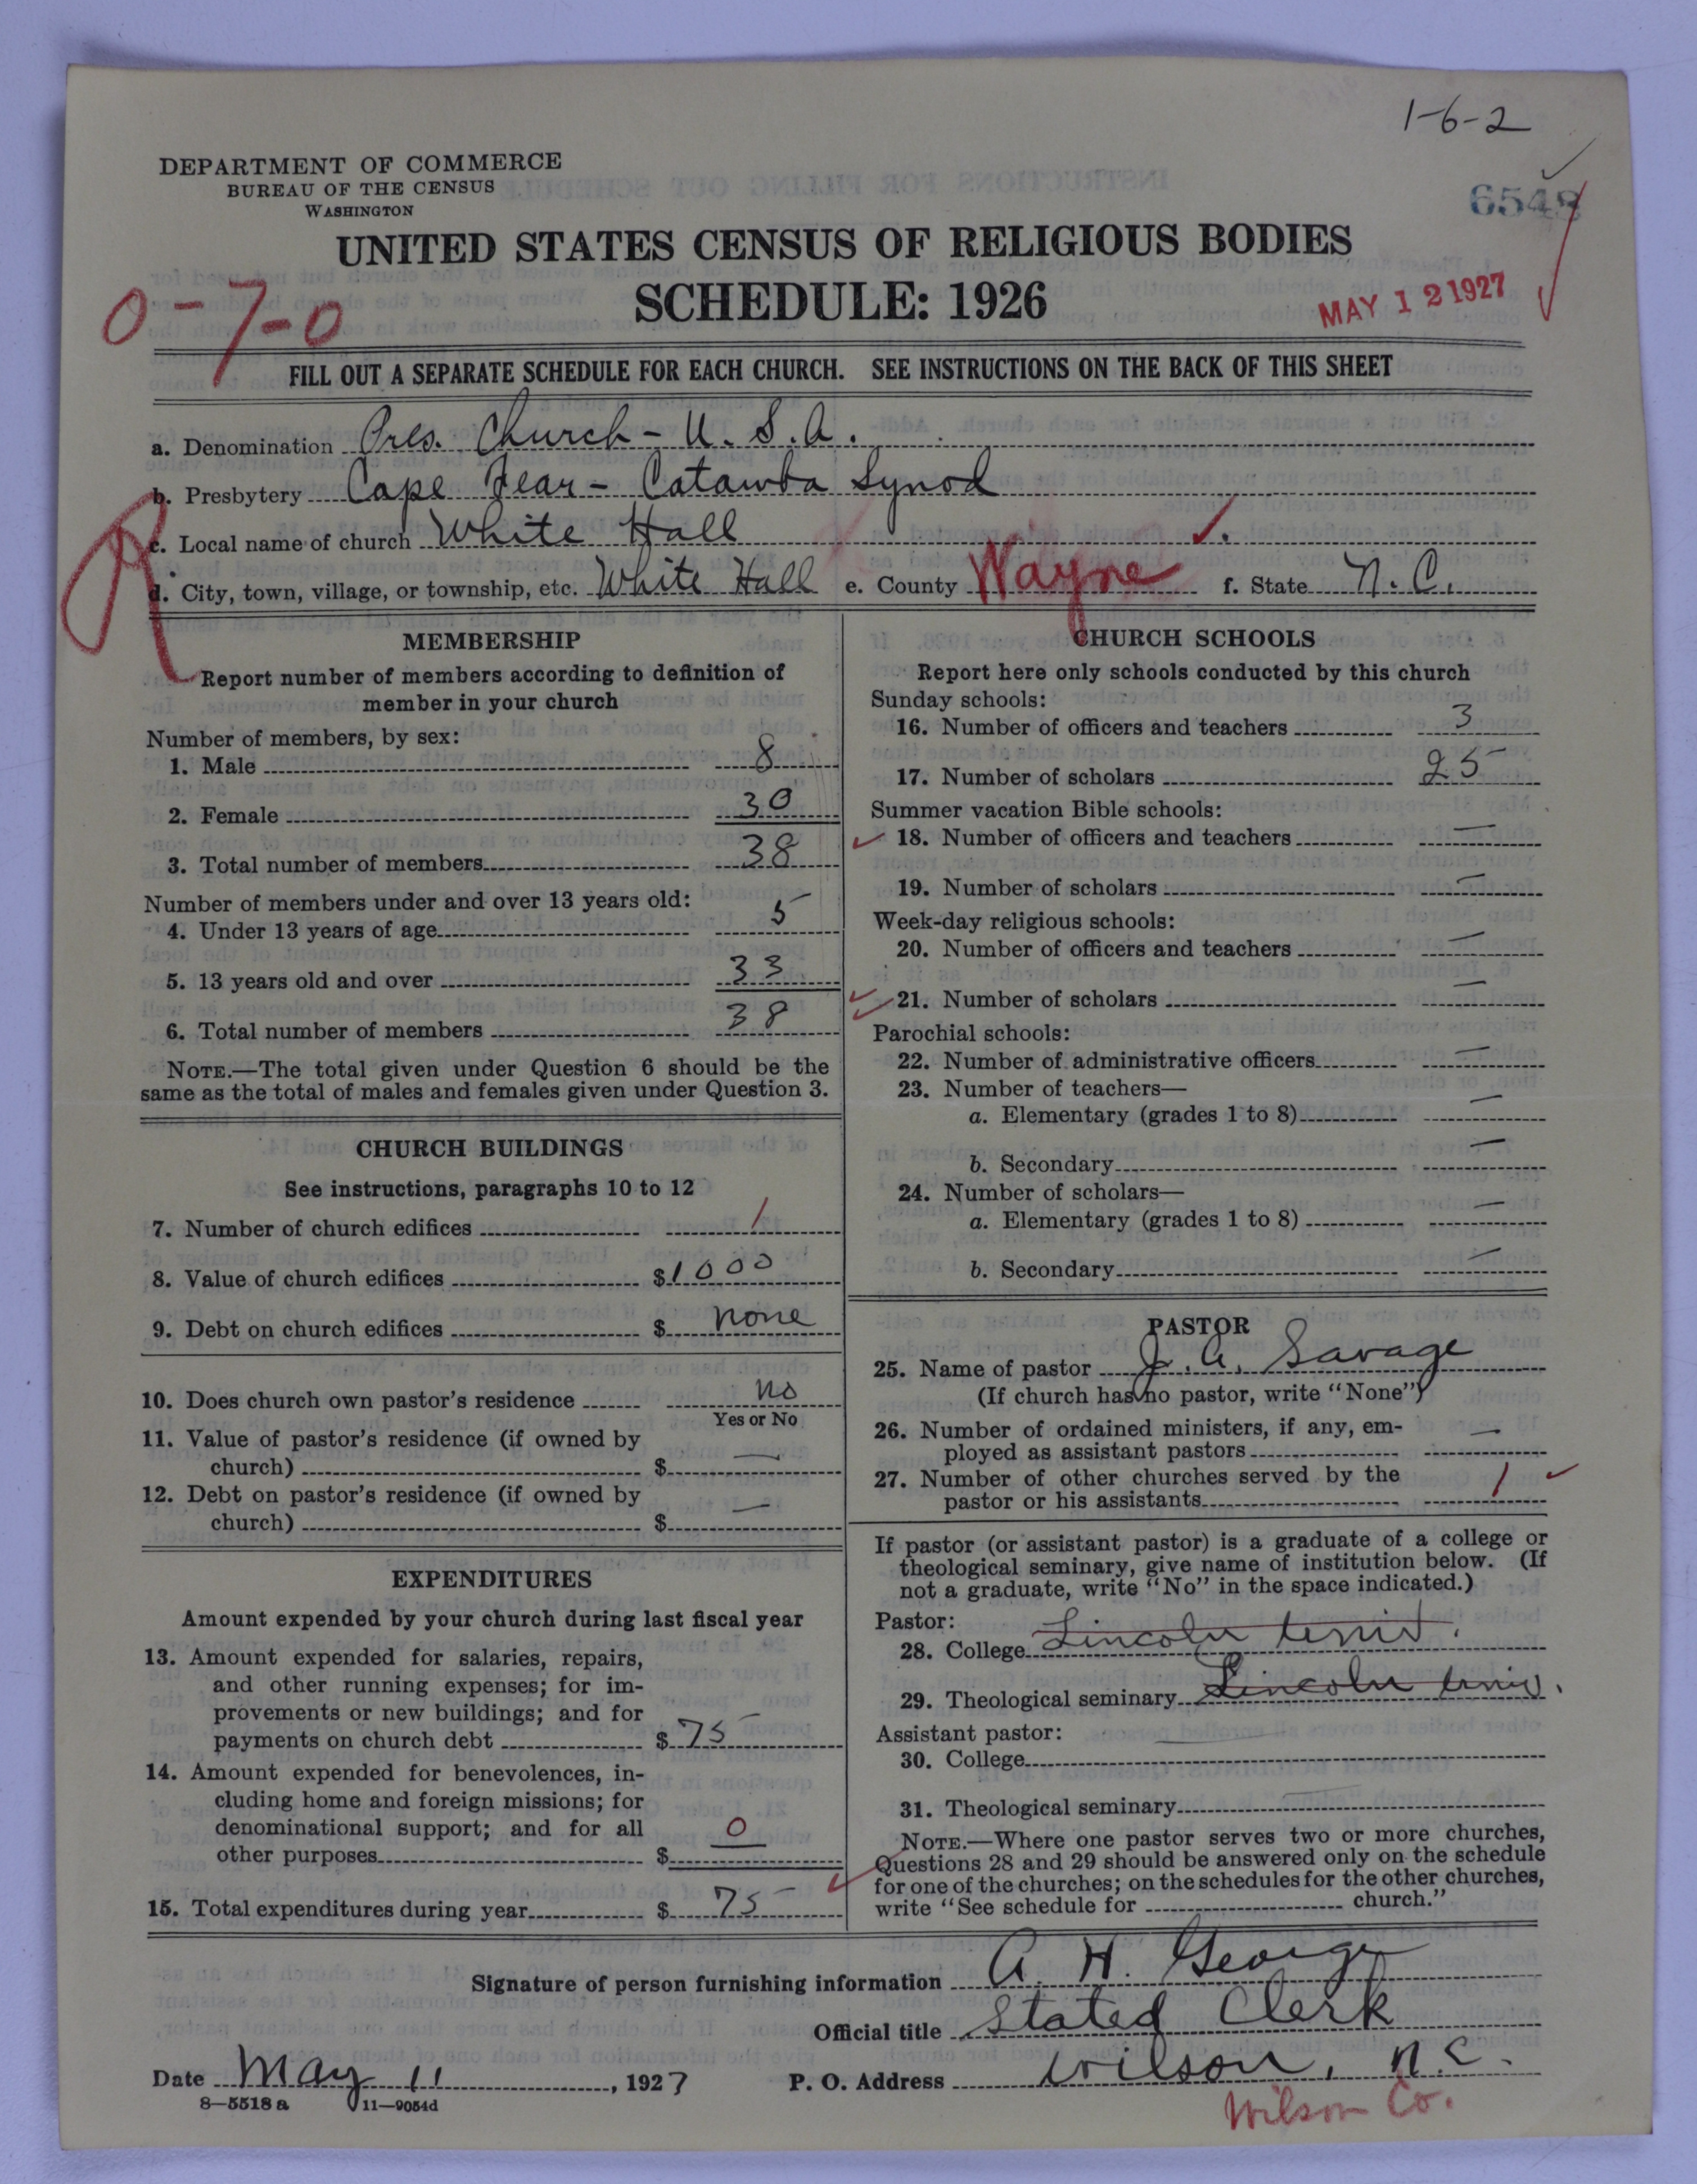 1-6-2
DEPARTMENT OF COMMERCE
BUREAU OF THE CENSUS
WASHINGTON
6548
UNITED STATES CENSUS OF RELIGIOUS BODIES
SCHEDULE: 1926
MAY 12 1927
0-7-0
FILL OUT A SEPARATE SCHEDULE FOR EACH CHURCH. SEE INSTRUCTIONS ON THE BACK OF THIS SHEET
a. Denomination Pres. Church - U. S. A.
b. Presbytery Cape Fear - Catawba Synod
c. Local name of church White Hall
d. City, town, village, or township, etc. White Hall e. County Wayne f. State N. C.
R
MEMBERSHIP
Report number of members according to definition of
member in your church
Number of members, by sex:
1. Male 8
2. Female 30
3. Total number of members 38
Number of members under and over 13 years old:
4. Under 13 years of age 5
5. 13 years old and over 33
6. Total number of members 38
NOTE.—The total given under Question 6 should be the
same as the total of males and females given under Question 3.
CHURCH BUILDINGS
See instructions, paragraphs 10 to 12
7. Number of church edifices 1
8. Value of church edifices $1000
9. Debt on church edifices $ none
10. Does church own pastor's residence no
Yes or No
11. Value of pastor's residence (if owned by
church) $ —
12. Debt on pastor's residence (if owned by
church) $ —
EXPENDITURES
Amount expended by your church during last fiscal year
13. Amount expended for salaries, repairs,
and other running expenses; for im-
provements or new buildings; and for
payments on church debt $ 75 —
14. Amount expended for benevolences, in-
cluding home and foreign missions; for
denominational support; and for all
other purposes $ 0
15. Total expenditures during year $ 75 —
CHURCH SCHOOLS
Report here only schools conducted by this church
Sunday schools:
16. Number of officers and teachers 3
17. Number of scholars 25
Summer vacation Bible schools:
18. Number of officers and teachers —
19. Number of scholars —
Week-day religious schools:
20. Number of officers and teachers —
21. Number of scholars —
Parochial schools:
22. Number of administrative officers —
23. Number of teachers—
a. Elementary (grades 1 to 8) —
b. Secondary —
24. Number of scholars—
a. Elementary (grades 1 to 8) —
b. Secondary —
PASTOR
25. Name of pastor J. A. Savage
(If church has no pastor, write "None")
26. Number of ordained ministers, if any, em-
ployed as assistant pastors —
27. Number of other churches served by the
pastor or his assistants 1
If pastor (or assistant pastor) is a graduate of a college or
theological seminary, give name of institution below. (If
not a graduate, write "No" in the space indicated.)
Pastor:
28. College Lincoln Univ.
29. Theological seminary Lincoln Univ.
Assistant pastor:
30. College
31. Theological seminary
NOTE.—Where one pastor serves two or more churches,
Questions 28 and 29 should be answered only on the schedule
for one of the churches; on the schedules for the other churches,
write "See schedule for church."
Signature of person furnishing information A. H. George
Official title Stated Clerk
Date May 11, 1927 P. O. Address Wilson, N.C.
8—5518a 11—9054d
Wilson Co.